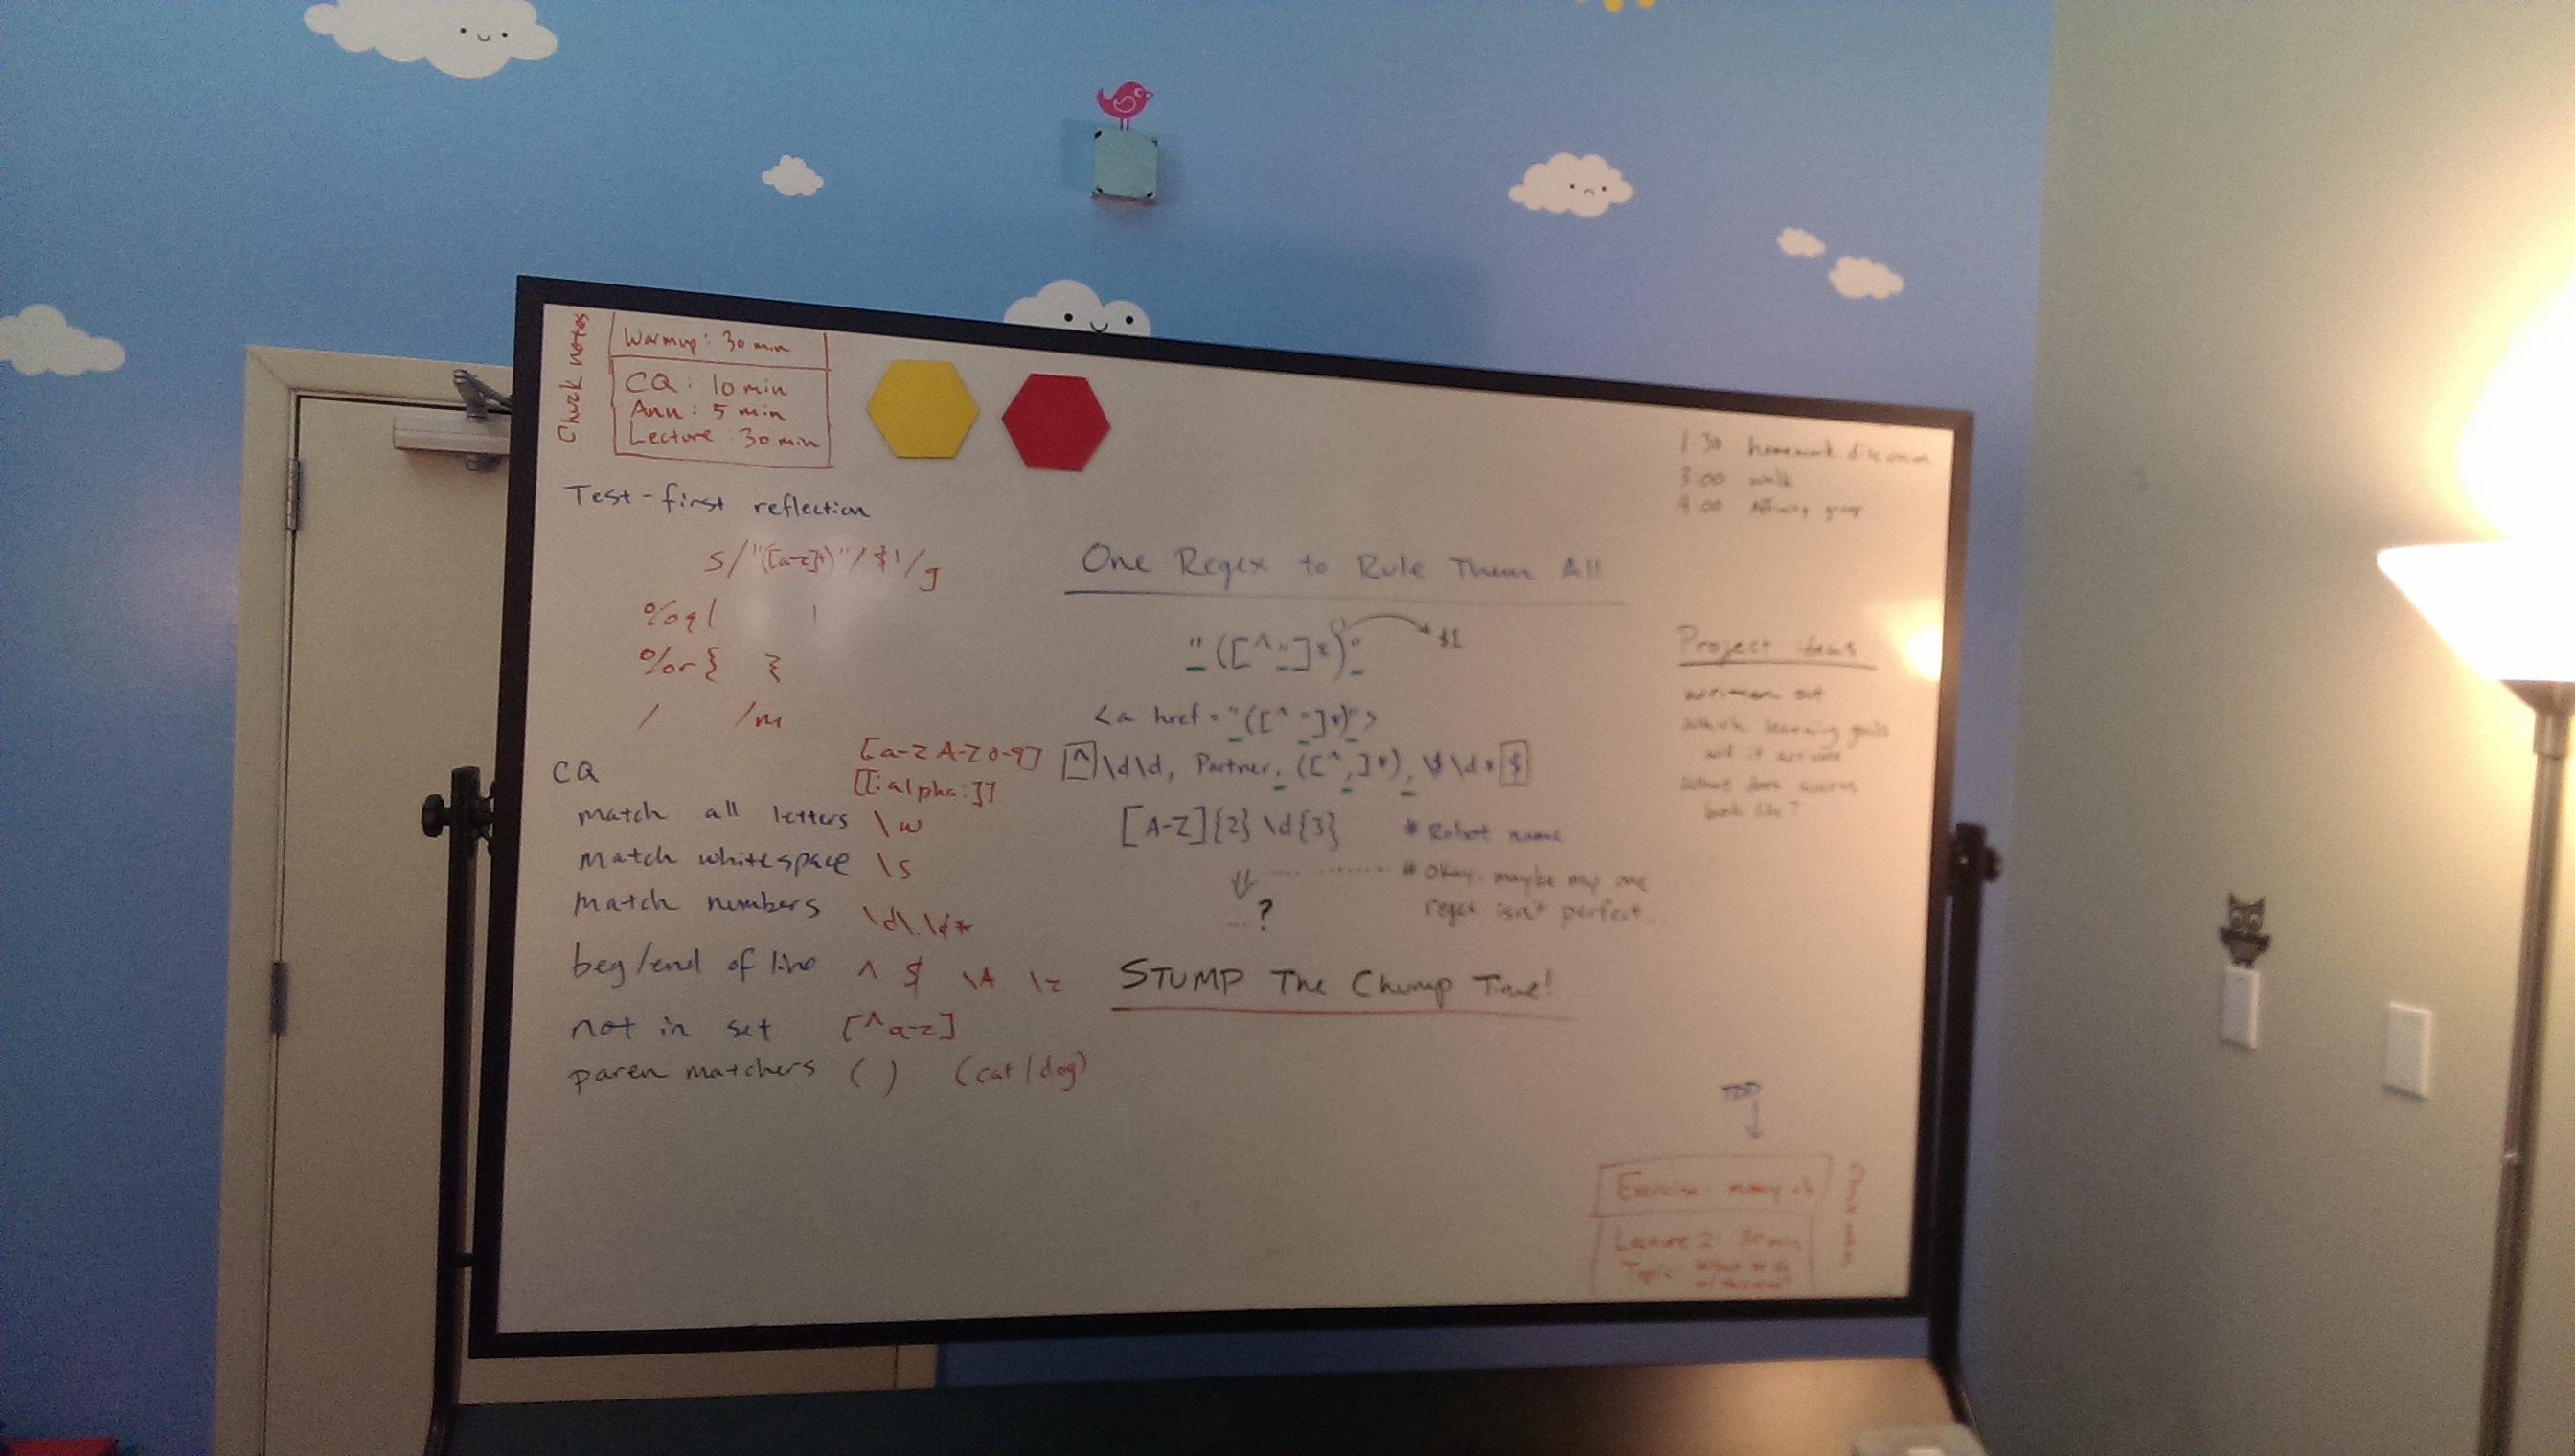 Chuck notes
Warmup: 30 min
CQ: 10 min
Ann: 5 min
Lecture: 30 min
Test-first reflection
s/"([a-z]+)"/$1/g
%q| |
%r{ }
/ /m
CQ
[a-zA-Z0-9]
[[:alpha:]]
match all letters \w
match whitespace \s
match numbers \d\.\d*
beg/end of line ^ $ \A \z
not in set [^a-z]
paren matchers ( ) (cat|dog)
One Regex to Rule Them All
"([^"]*)" $1
<a href="([^"]*)">
^\d\d, Partner, ([^,]*), \$\d*$
[A-Z]{2}\d{3} # Robot name
# Okay, maybe my one
regex isn't perfect...
...?
STUMP The Chump Time!
1:30 homework discussion
3:00 walk
4:00
Project ideas
written out
which learning goals
will it
what does success
look like?
TDD
Exercise: money.rb
Lecture 2: 30 min
Topic: What to do